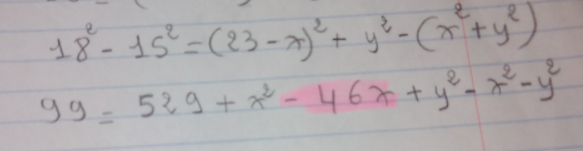 18² - 15² = (23 - x)² + y² - (x² + y²)
99 = 529 + x² - 46x + y² - x² - y²